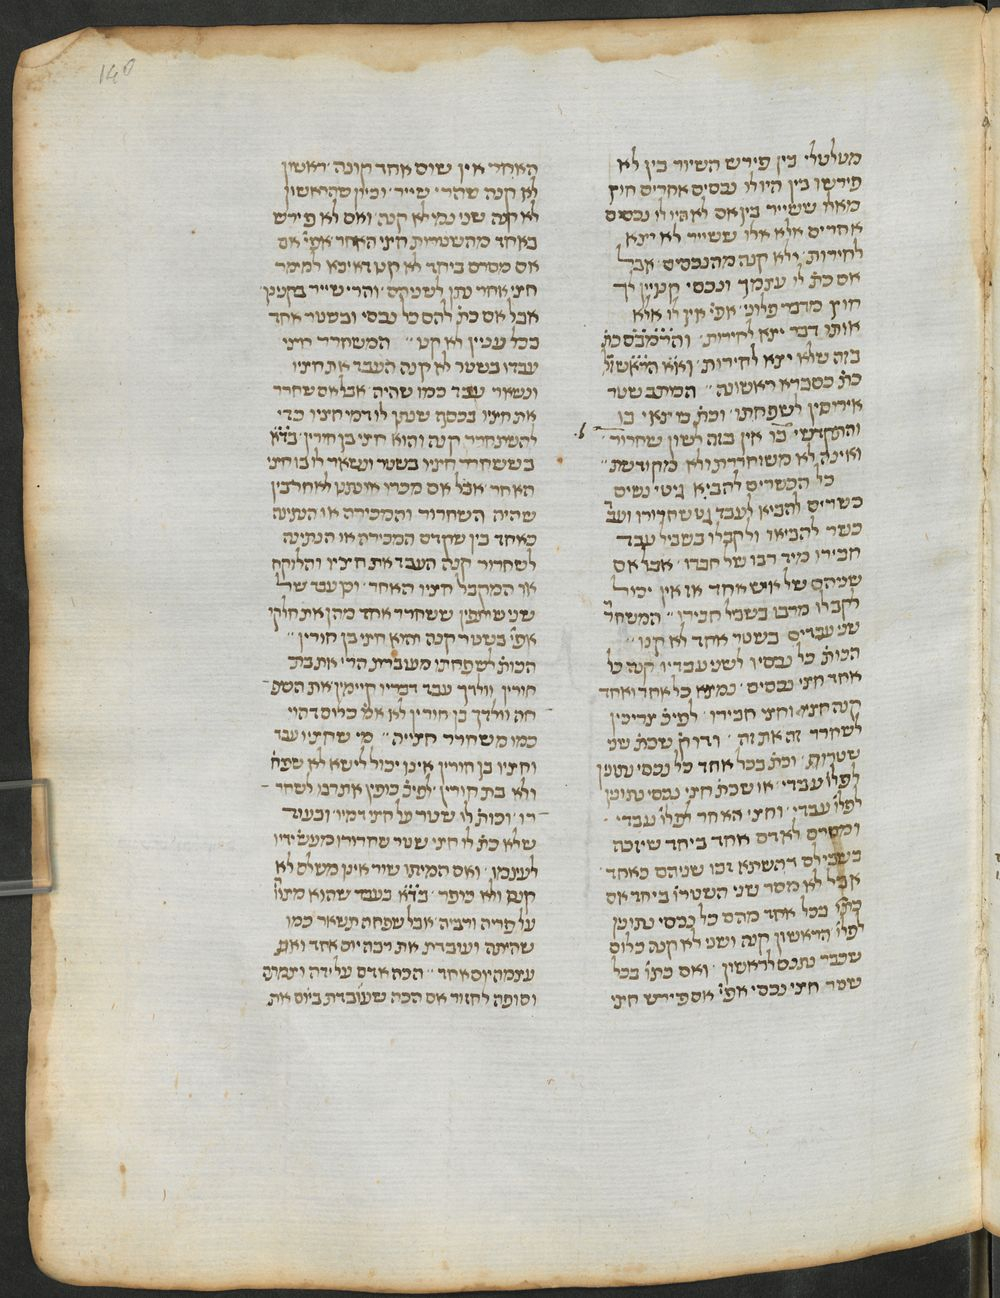 140
מטלטלי בין פירש השיור בין לא
פירשו בין היו לו נכסים אחרים חוץ
מאלו ששייר בין אם לא היו לו נכסים
אחרים אלא אלו ששייר לא יצא
לחירות ולא קנה מהנכסים אבל
אם כת' לו עצמך ונכסי קנויין לך
חוץ מדבר פלוני אפי' אין לו אלא
אותו דבר יצא לחירות והרמב"ם כת'
בזה שלא יצא לחירות וא"א הרא"ש ז"ל
כת' כסברא ראשונה המתב שטר
אירוסין לשפחתו וכת' צאי בו
והתקדשי בו אין בזה לשון שחרור
ואינה לא משוחררת ולא מקודשת
כל הכשרים להביא גיטי נשים
כשרים להביא לעבד גט שחרורו ועב'
כשר להביאו ולקבלו בשביל עבד
חבירו מיד רבו של חברו אבל אם
שניהם של איש אחד אז אין יכול
לקבלו מרבו בשביל חבירו המשחר'
שני עבדים בשטר אחד לא קנו
הכות' כל נכסיו לשני עבדיו קנה כל
אחד חצי נכסים נמצא כל אחד ואחד
קנה חציו וחצי חבירו לפיכ' צריכין
לשחרר זה את זה ודוק' שכת' שני
שטרות וכת' בכל אחד כל נכסי נתונין
לפלו' עבדי או שכת' חצי נכסי נתונין
לפלו' עבדי וחצי האחר לפלו' עבדי
ומסרם לאדם אחד ביחד שיזכה
בשבילם דהשתא זכו שניהם כאחד
אבל לא מסר שני השטרו' ביחד אם
כתו' בכל אחד מהם כל נכסי נתונין
לפלו' הראשון קנה ושני לא קנה כלום
שכבר נתנם לראשון ואם כתו' בכל
שטר חצי נכסי אפי' אם פירש חצי
האחר אין שום אחד קונה ראשון
לא קנה שהרי שייר וכיון שהראשון
לא קנה שני נמי לא קנה ואם לא פירש
באחד מהשטרות חצי האחר אפי' אם
אם מסרם ביחד לא קנו דאיכא למימר
חצי אחד נתן לשניהם והרי שייר בקנינן
אבל אם כת' להם כל נכסי ובשטר אחד
בכל ענין לא קנו המשחרר חצי
עבדו בשטר לא קנה העבד את חציו
ונשאר עבד כמו שהיה אבל אם שחרר
את חציו בכסף שנתן לו דמי חציו כדי
להשתחרר קנה והוא חצי בן חורין בד"א
בששחרר חציו בשטר ונשאר לו בו חצי
האחר אבל אם מכרו או נתנו לאחר בין
שהיה השחרור והמכירה או הנתינה
כאחד בין שקדם המכירה או הנתינה
לשחרור קנה העבד את חציו והלוקח
או המקבל חציו האחר וכן עבד של
שני שותפין ששחרר אחד מהן את חלקו
אפי' בשטר קנה והוא חצי בן חורין
הכות' לשפחתו מעוברת הרי את בת
חורין וולדך עבד דבריו קיימין את השפ
חה וולדך בן חורין לא אמ' כלום דהוי
כמו משחרר חצייה מי שחציו עבד
וחציו בן חורין אינו יכול לישא לא שפח'
ולא בת חורין לפיכ' כופין את רבו לשחר
רו וכות' לו שטר על חצי דמיו ובעוד
שלא כת' לו חצי שטר שחרורו מעשה ידיו
לעצמו ואם המיתו שור אינו משלם לא
קנס ולא כופר בד"א בעבד שהוא מצוו'
על פריה ורביה אבל שפחה תשאר כמו
שהיתה ועובדת את רבה יום אחד ואת
עצמה יום אחד הכה אדם על ידה וצמתה
וסופה לחזור אם הכה שעובדת ביום את